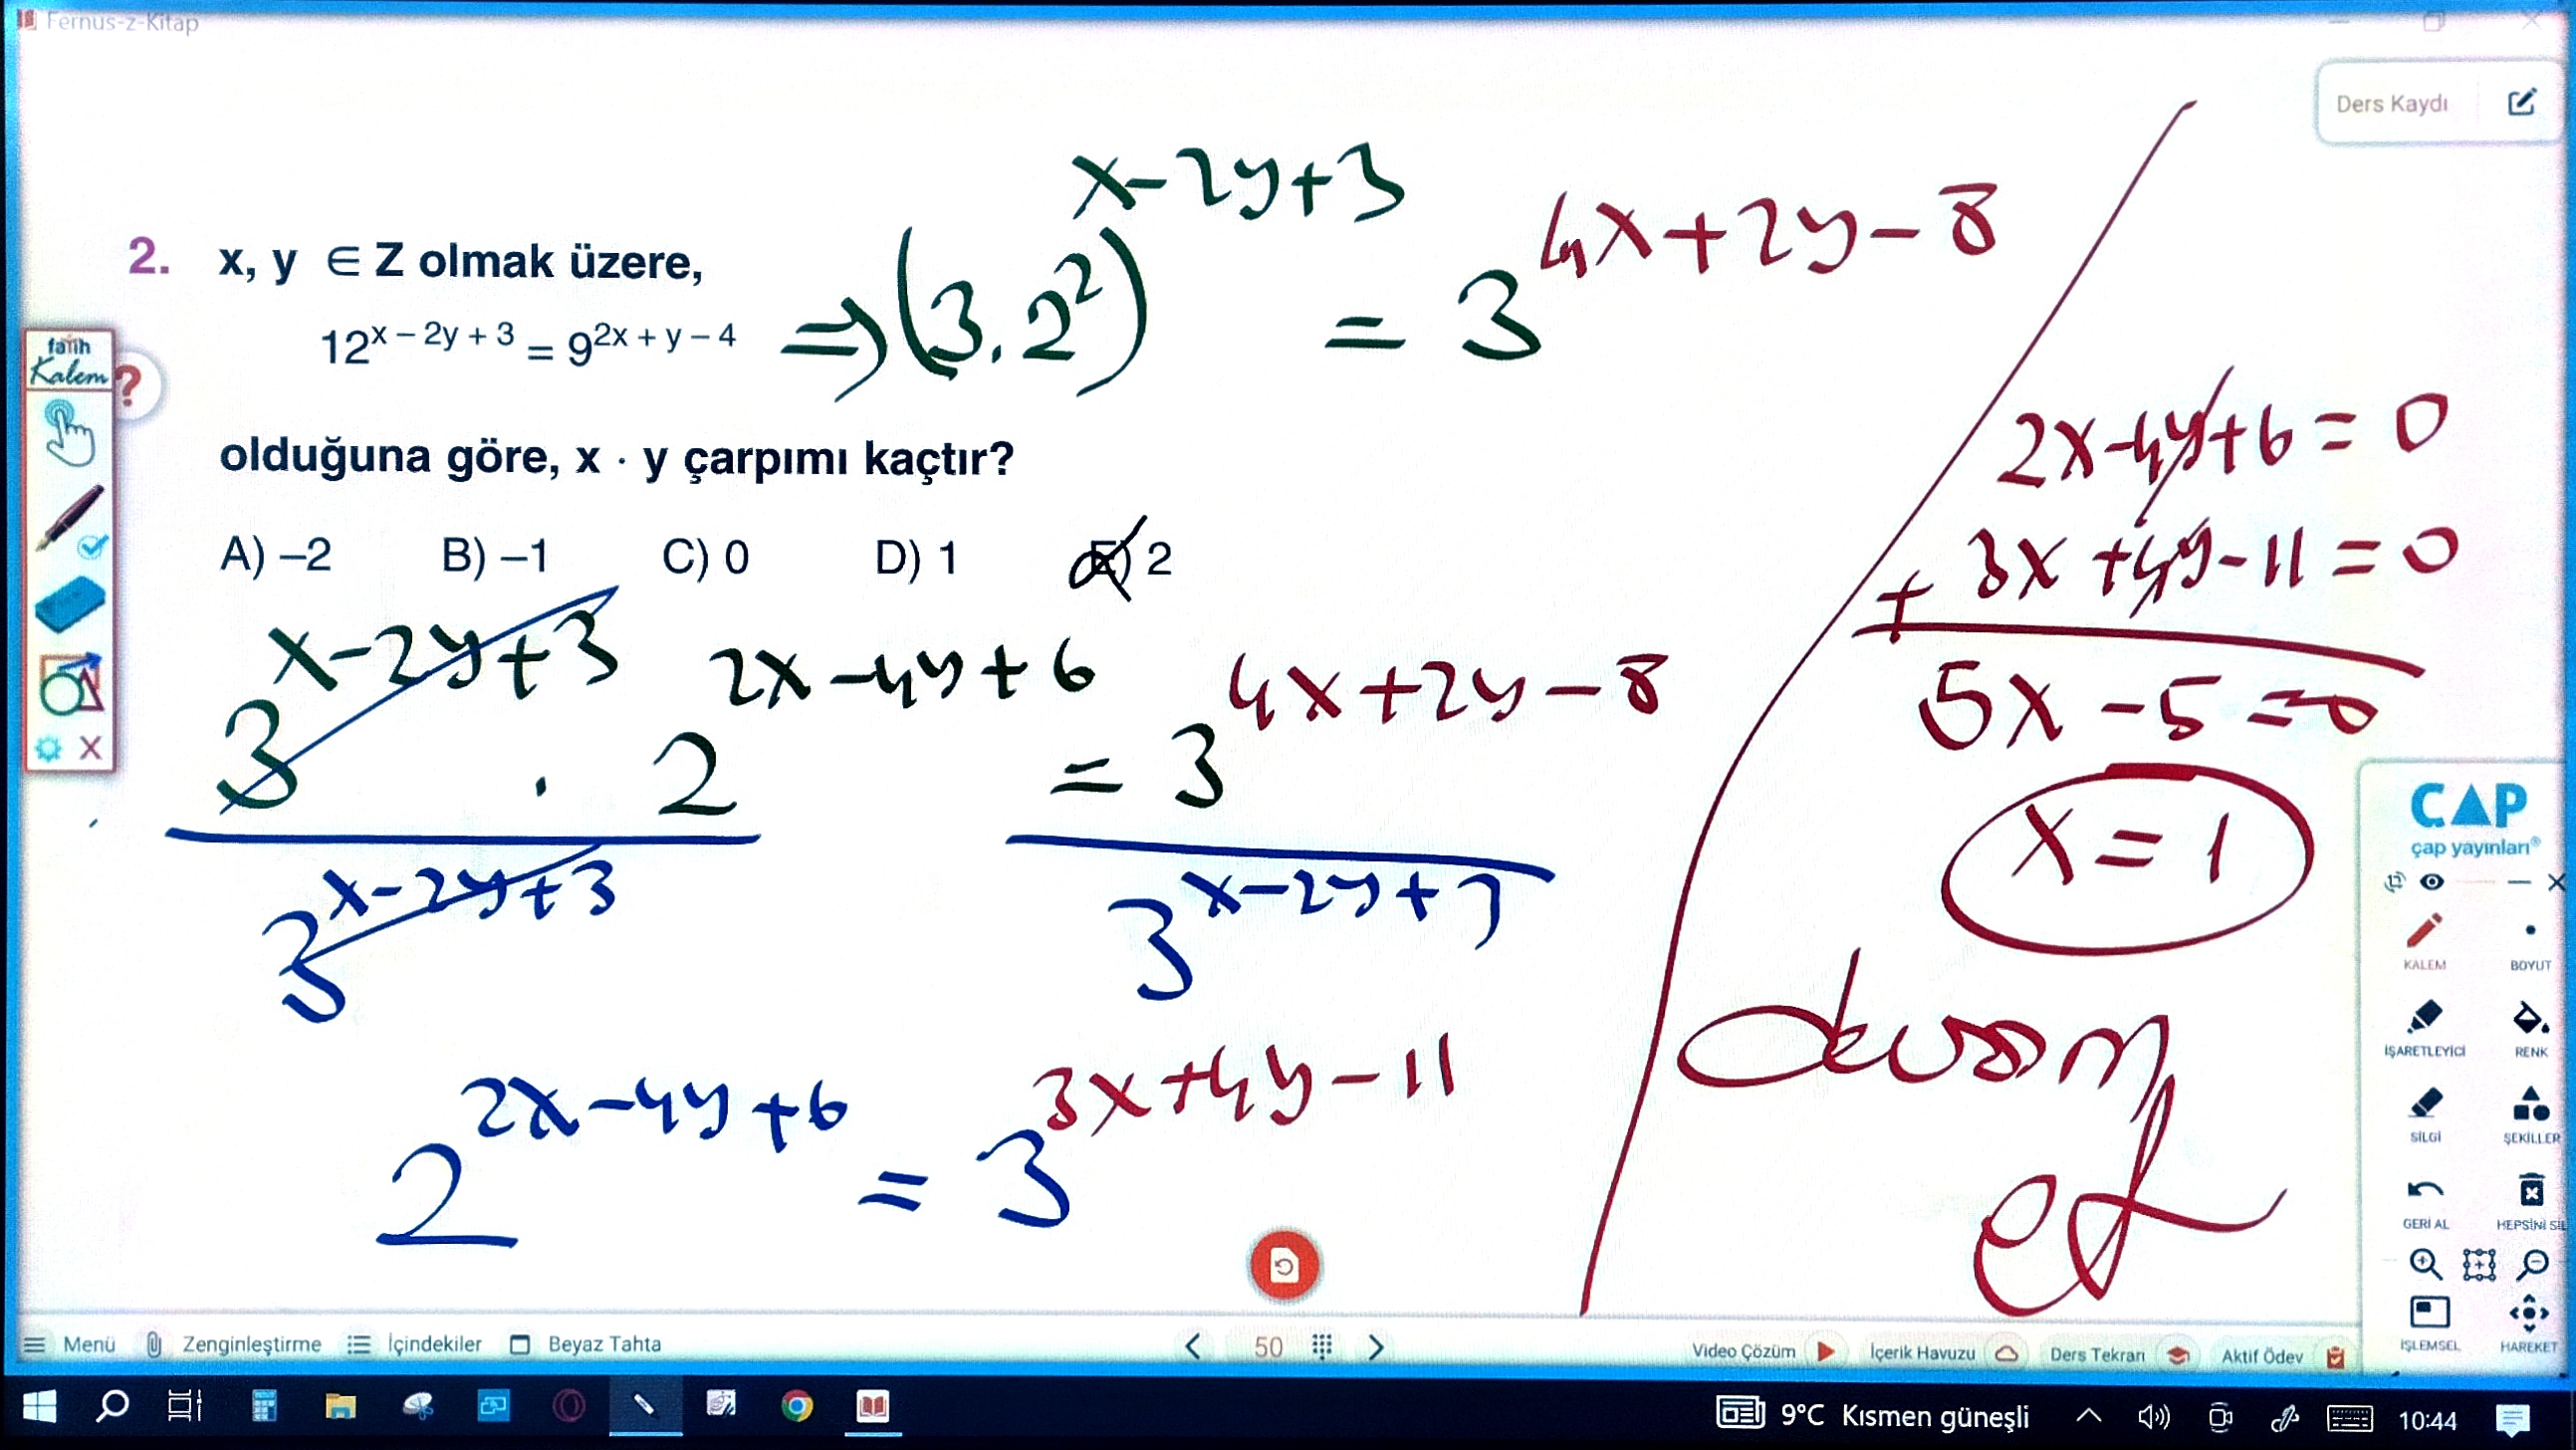 Fernus-z-Kitap
Ders Kaydı
2. x, y ∈ Z olmak üzere,
12^(x – 2y + 3) = 9^(2x + y – 4) ⇒ (3.2²)^(x-2y+3) = 3^(4x+2y-8)
olduğuna göre, x · y çarpımı kaçtır?
A) –2 B) –1 C) 0 D) 1 E) 2
3^(x-2y+3) . 2^(2x-4y+6) = 3^(4x+2y-8)
3^(x-2y+3) 3^(x-2y+3)
2^(2x-4y+6) = 3^(3x+4y-11)
2x-4y+6=0
+ 3x+4y-11=0
5x-5=0
x=1
devam
et
fatih
Kalem
?
ÇAP
çap yayınları®
KALEM BOYUT
İŞARETLEYİCİ RENK
SİLGİ ŞEKİLLER
GERİ AL HEPSİNİ SİL
İŞLEMSEL HAREKET
Menü Zenginleştirme İçindekiler Beyaz Tahta 50 Video Çözüm İçerik Havuzu Ders Tekrarı Aktif Ödev
9°C Kısmen güneşli 10:44